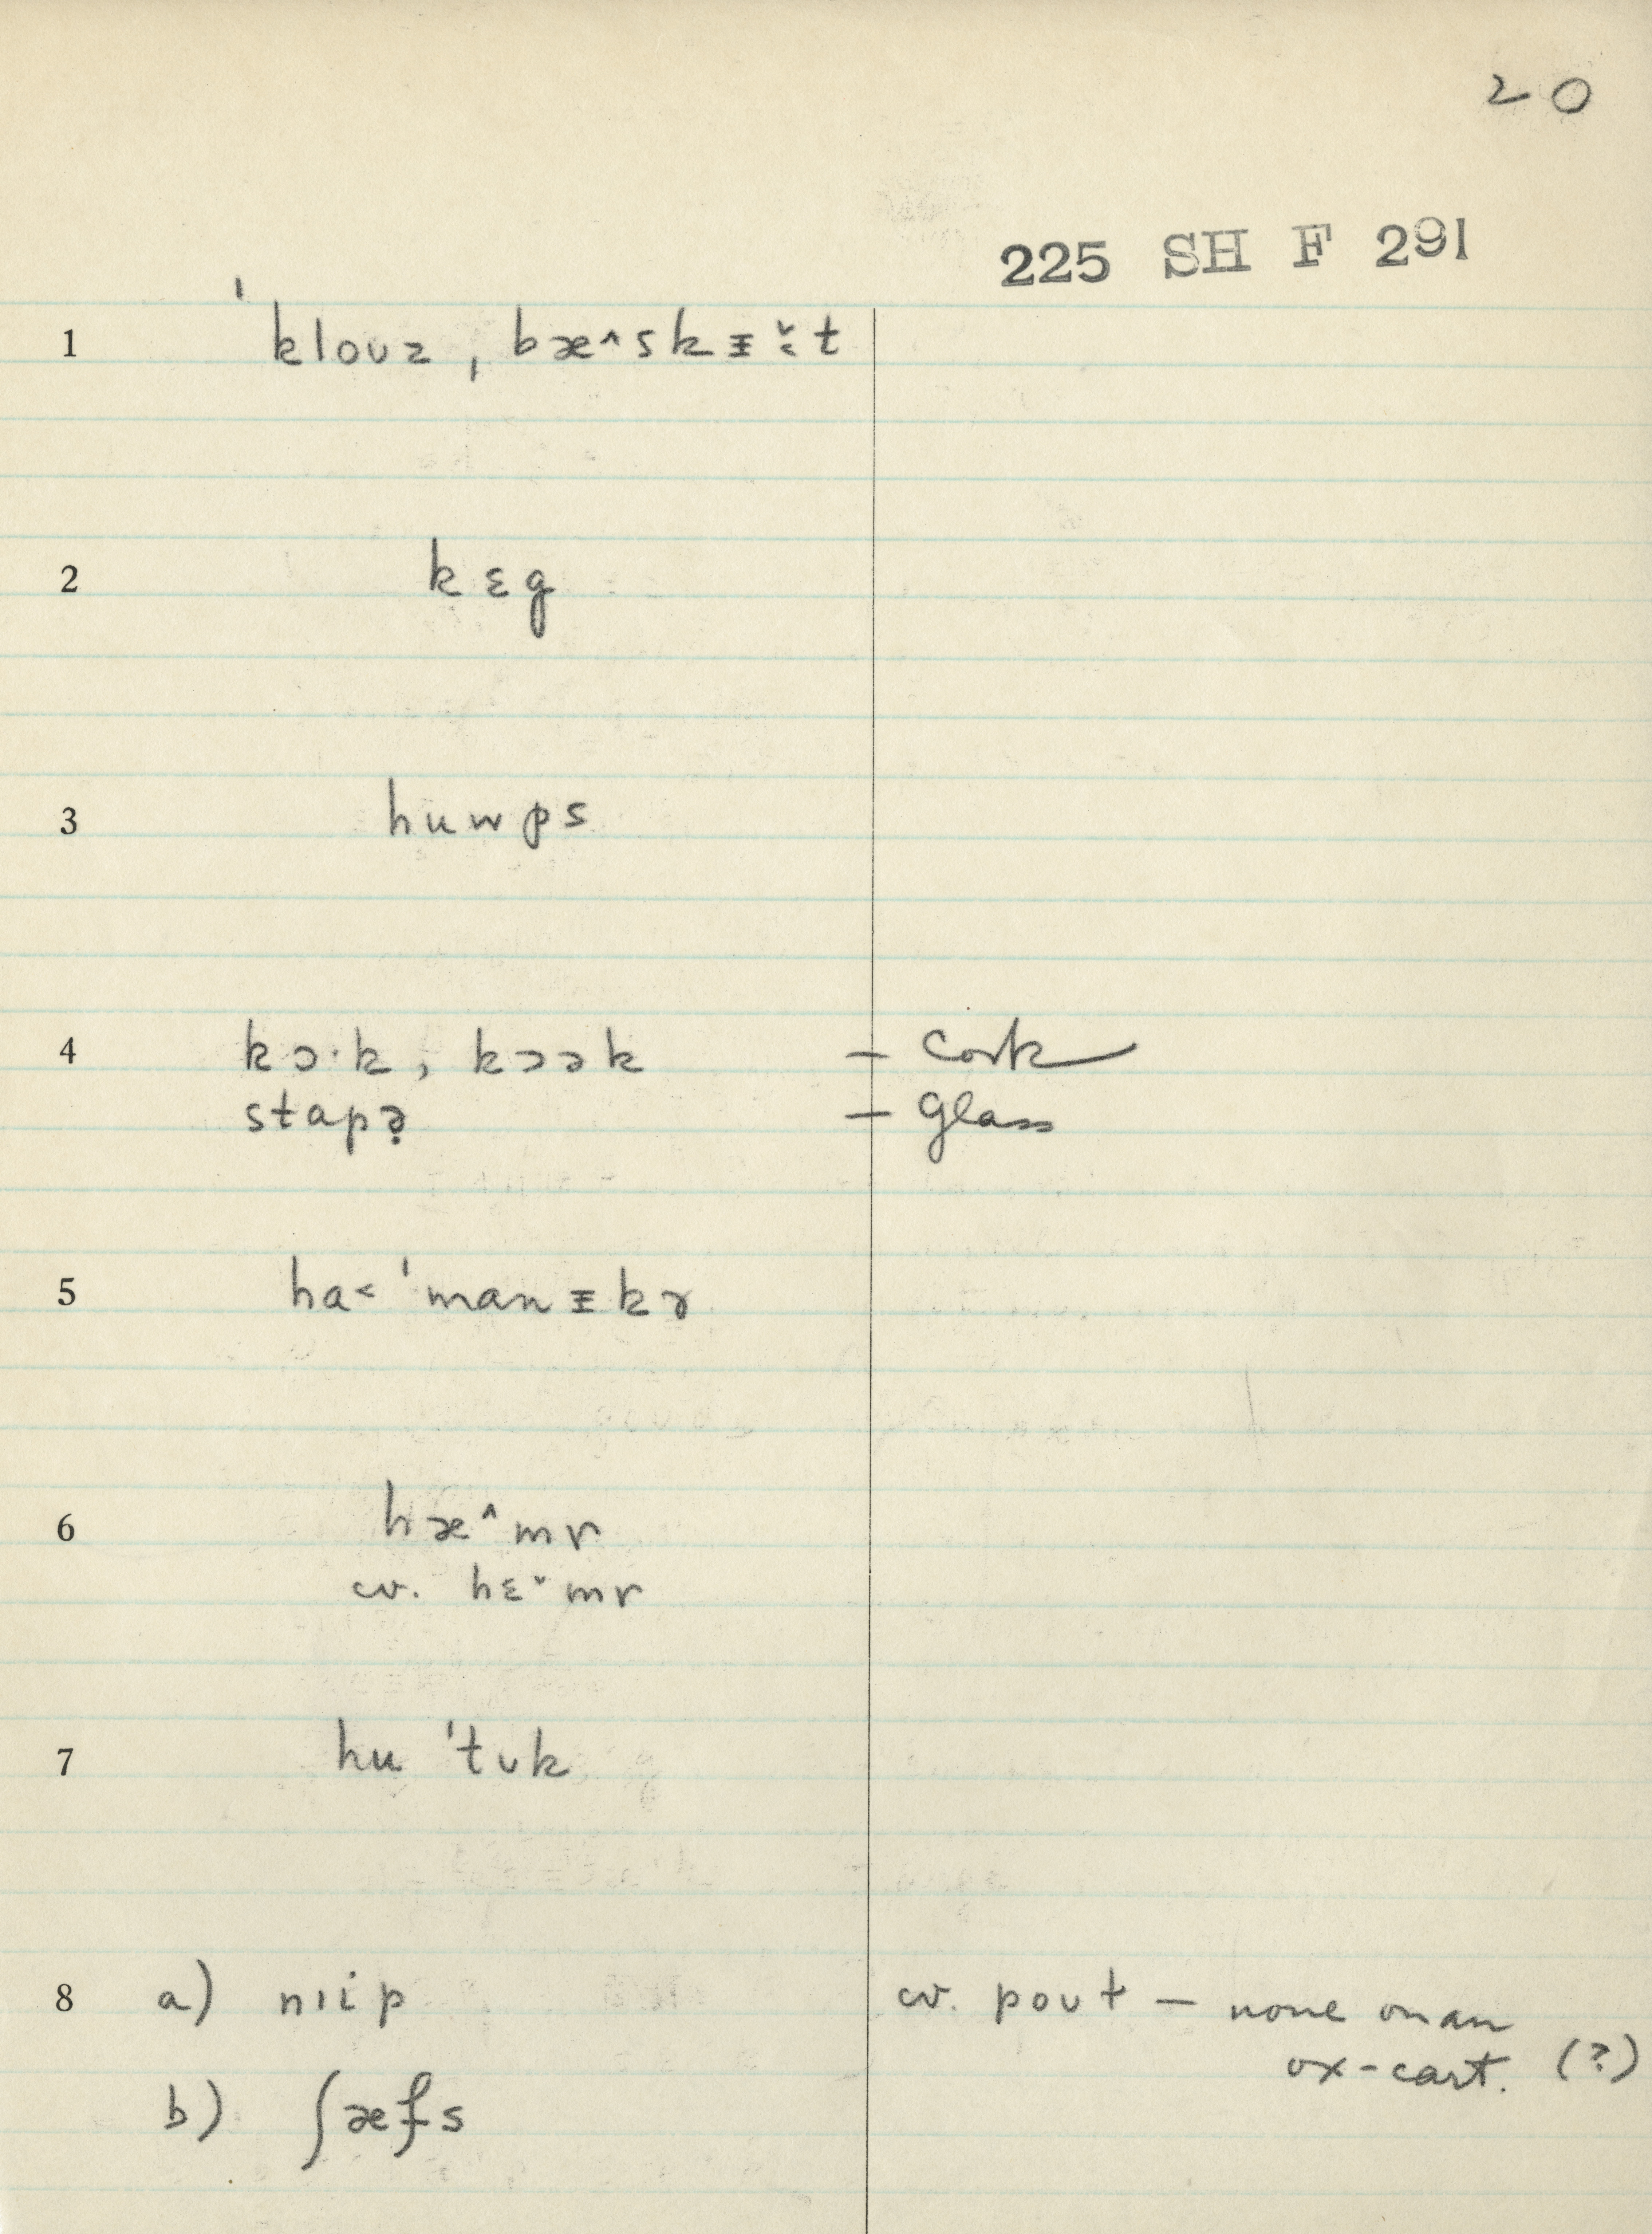 20
225 SH F 291
1 ˈkloʊz, bæ^skɪ̵ˇ˂t
2 kɛg
3 huwps
4 kɔ·k, kɔək — cork
stapə̣ — glass
5 ha˂ ˈmanɪ̵kɚ
6 hæ^mr
cv. hɛˇmr
7 hu ˈtʊk
8 a) nɪip cv. poʊt — none on an
ox-cart. (?)
b) ʃæfs